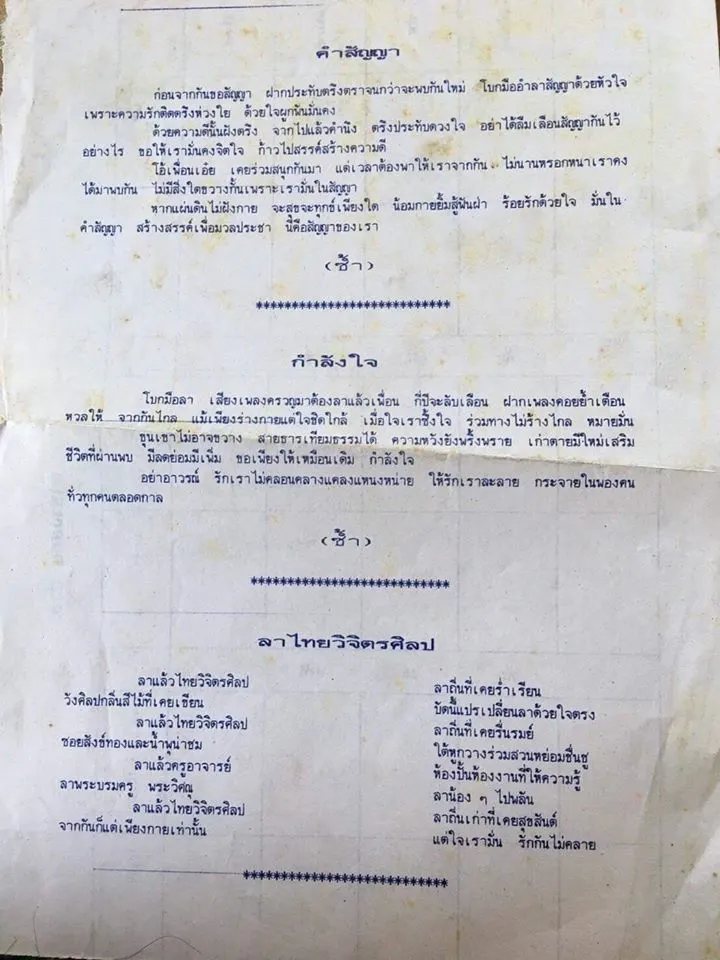 คำสัญญา
ก่อนจากกันขอสัญญา ฝากประทับตรึงตราจนกว่าจะพบกันใหม่ โบกมืออำลาสัญญาด้วยหัวใจ
เพราะความรักติดตรึงห่วงใย ด้วยใจผูกพันมั่นคง
ด้วยความดีนั้นฝังตรึง จากไปแล้วคำนึง ตรึงประทับดวงใจ อย่าได้ลืมเลือนสัญญากันไว้
อย่างไร ขอให้เรามั่นคงจิตใจ ก้าวไปสรรค์สร้างความดี
โอ้เพื่อนเอ๋ย เคยร่วมสนุกกันมา แต่เวลาต้องพาให้เราจากกัน ไม่นานหรอกหนาเราคง
ได้มาพบกัน ไม่มีสิ่งใดขวางกั้นเพราะเรามั่นในสัญญา
หากแผ่นดินไม่ฝังกาย จะสุขจะทุกข์เพียงใด น้อมกายยิ้มสู้ฟันฝ่า ร้อยรักด้วยใจ มั่นใน
คำสัญญา สร้างสรรค์เพื่อมวลประชา นี่คือสัญญาของเรา
(ซ้ำ)
***************************
กำลังใจ
โบกมือลา เสียงเพลงครวญมาต้องลาแล้วเพื่อน กี่ปีจะลับเลือน ฝากเพลงคอยย้ำเตือน
หวลให้ จากกันไกล แม้เพียงร่างกายแต่ใจชิดใกล้ เมื่อใจเราซึ้งใจ ร่วมทางไม่ร้างไกล หมายมั่น
ขุนเขาไม่อาจขวาง สายธารเทียมธรรมได้ ความหวังยังพริ้งพราย เก่าตายมีใหม่เสริม
ชีวิตที่ผ่านพบ มีลดย่อมมีเพิ่ม ขอเพียงให้เหมือนเดิม กำลังใจ
อย่าอาวรณ์ รักเราไม่คลอนคลางแคลงแหนงหน่าย ให้รักเราละลาย กระจายในผองคน
ทั่วทุกคนตลอดกาล
(ซ้ำ)
****************************
ลาไทยวิจิตรศิลป
ลาแล้วไทยวิจิตรศิลป ลาถิ่นที่เคยร่ำเรียน
วังศิลปกลิ่นสีไม้ที่เคยเขียน บัดนี้แปรเปลี่ยนลาด้วยใจตรง
ลาแล้วไทยวิจิตรศิลป ลาถิ่นที่เคยรื่นรมย์
ซอยสังข์ทองและน้ำพุน่าชม ใต้หูกวางร่วมสวนหย่อมชื่นชู
ลาแล้วครูอาจารย์ ห้องปั้นห้องงานที่ให้ความรู้
ลาพระบรมครู พระวิศณุ ลาน้อง ๆ ไปพลัน
ลาแล้วไทยวิจิตรศิลป ลาถิ่นเก่าที่เคยสุขสันต์
จากกันก็แต่เพียงกายเท่านั้น แต่ใจเรามั่น รักกันไม่คลาย
*****************************